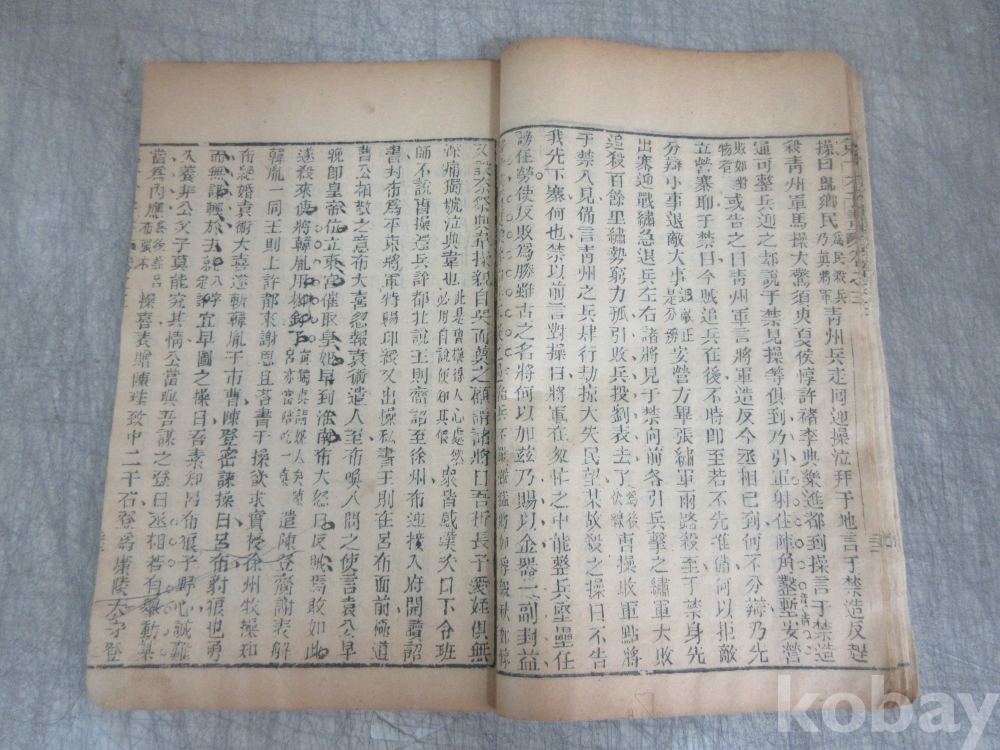 操曰 為民殺兵 乃真將軍 青州兵走 迎操泣拜于地言于禁造反趕
殺青州軍馬操大驚須臾夏侯惇許褚李典樂進都到操言于禁造
反可整兵迎之却說于禁見操等俱到乃引軍射住陣角鑿塹安營
或告之曰青州軍言將軍造反今丞相已到何不分辯乃先
立營寨耶于禁曰今賊追兵在後不時即至若不先准備何以拒敵
分辯小事退敵大事 安營方畢張繡軍兩路殺至于禁身先
出寨迎戰繡急退兵左右諸將見于禁向前各引兵擊之繡軍大敗
追殺百餘里繡勢窮力孤引敗兵投劉表去了 曹操收軍點將
于禁入見備言青州之兵肆行劫掠大失民望某故殺之操曰不告
我先下寨何也禁以前言對操曰將軍在匆忙之中能整兵堅壘任
謗任勞使反敗為勝雖古之名將何以加茲乃賜以金器一副封益
又設祭祭典韋操親自哭而奠之顧謂諸將曰吾折長子愛姪俱無
深痛獨號泣典韋也 衆皆感嘆次日下令班
師不說曹操還兵許都且說王則齎詔至徐州布迎接入府開讀詔
書封布為平東將軍特賜印綬又出操私書王則在呂布面前極道
曹公相敬之意布大喜忽報袁術遣人至布喚入問之使言袁公早
晚即皇帝位立東宮催取皇妃早到淮南布大怒曰反賊焉敢如此
遂殺來使將韓胤用枷釘了 遣陳登齎謝表解
韓胤一同王則上許都來謝恩且荅書于操欲求實授徐州牧操知
布絕婚袁術大喜遂斬韓胤于市曹陳登密諫操曰呂布豺狼也勇
而無謀輕於去就 宜早圖之操曰吾素知呂布狼子野心誠難
久養非公父子莫能究其情公當與吾謀之登曰丞相若有舉動某
當為內應 操喜表贈陳珪致中二千石登為廣陵太守登
kobay